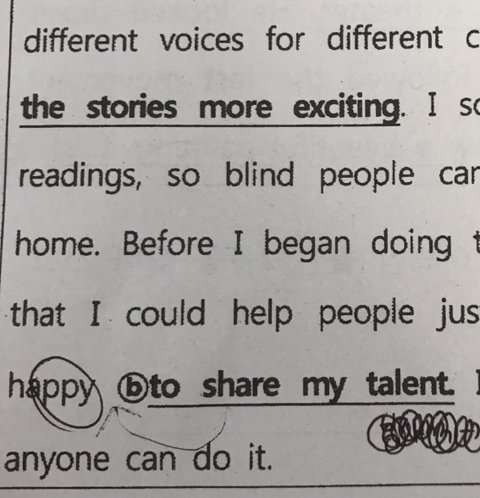 different voices for different
the stories more exciting. I
readings, so blind people
home. Before I began doing
that I could help people
happy ⓑto share my talent.
anyone can do it.